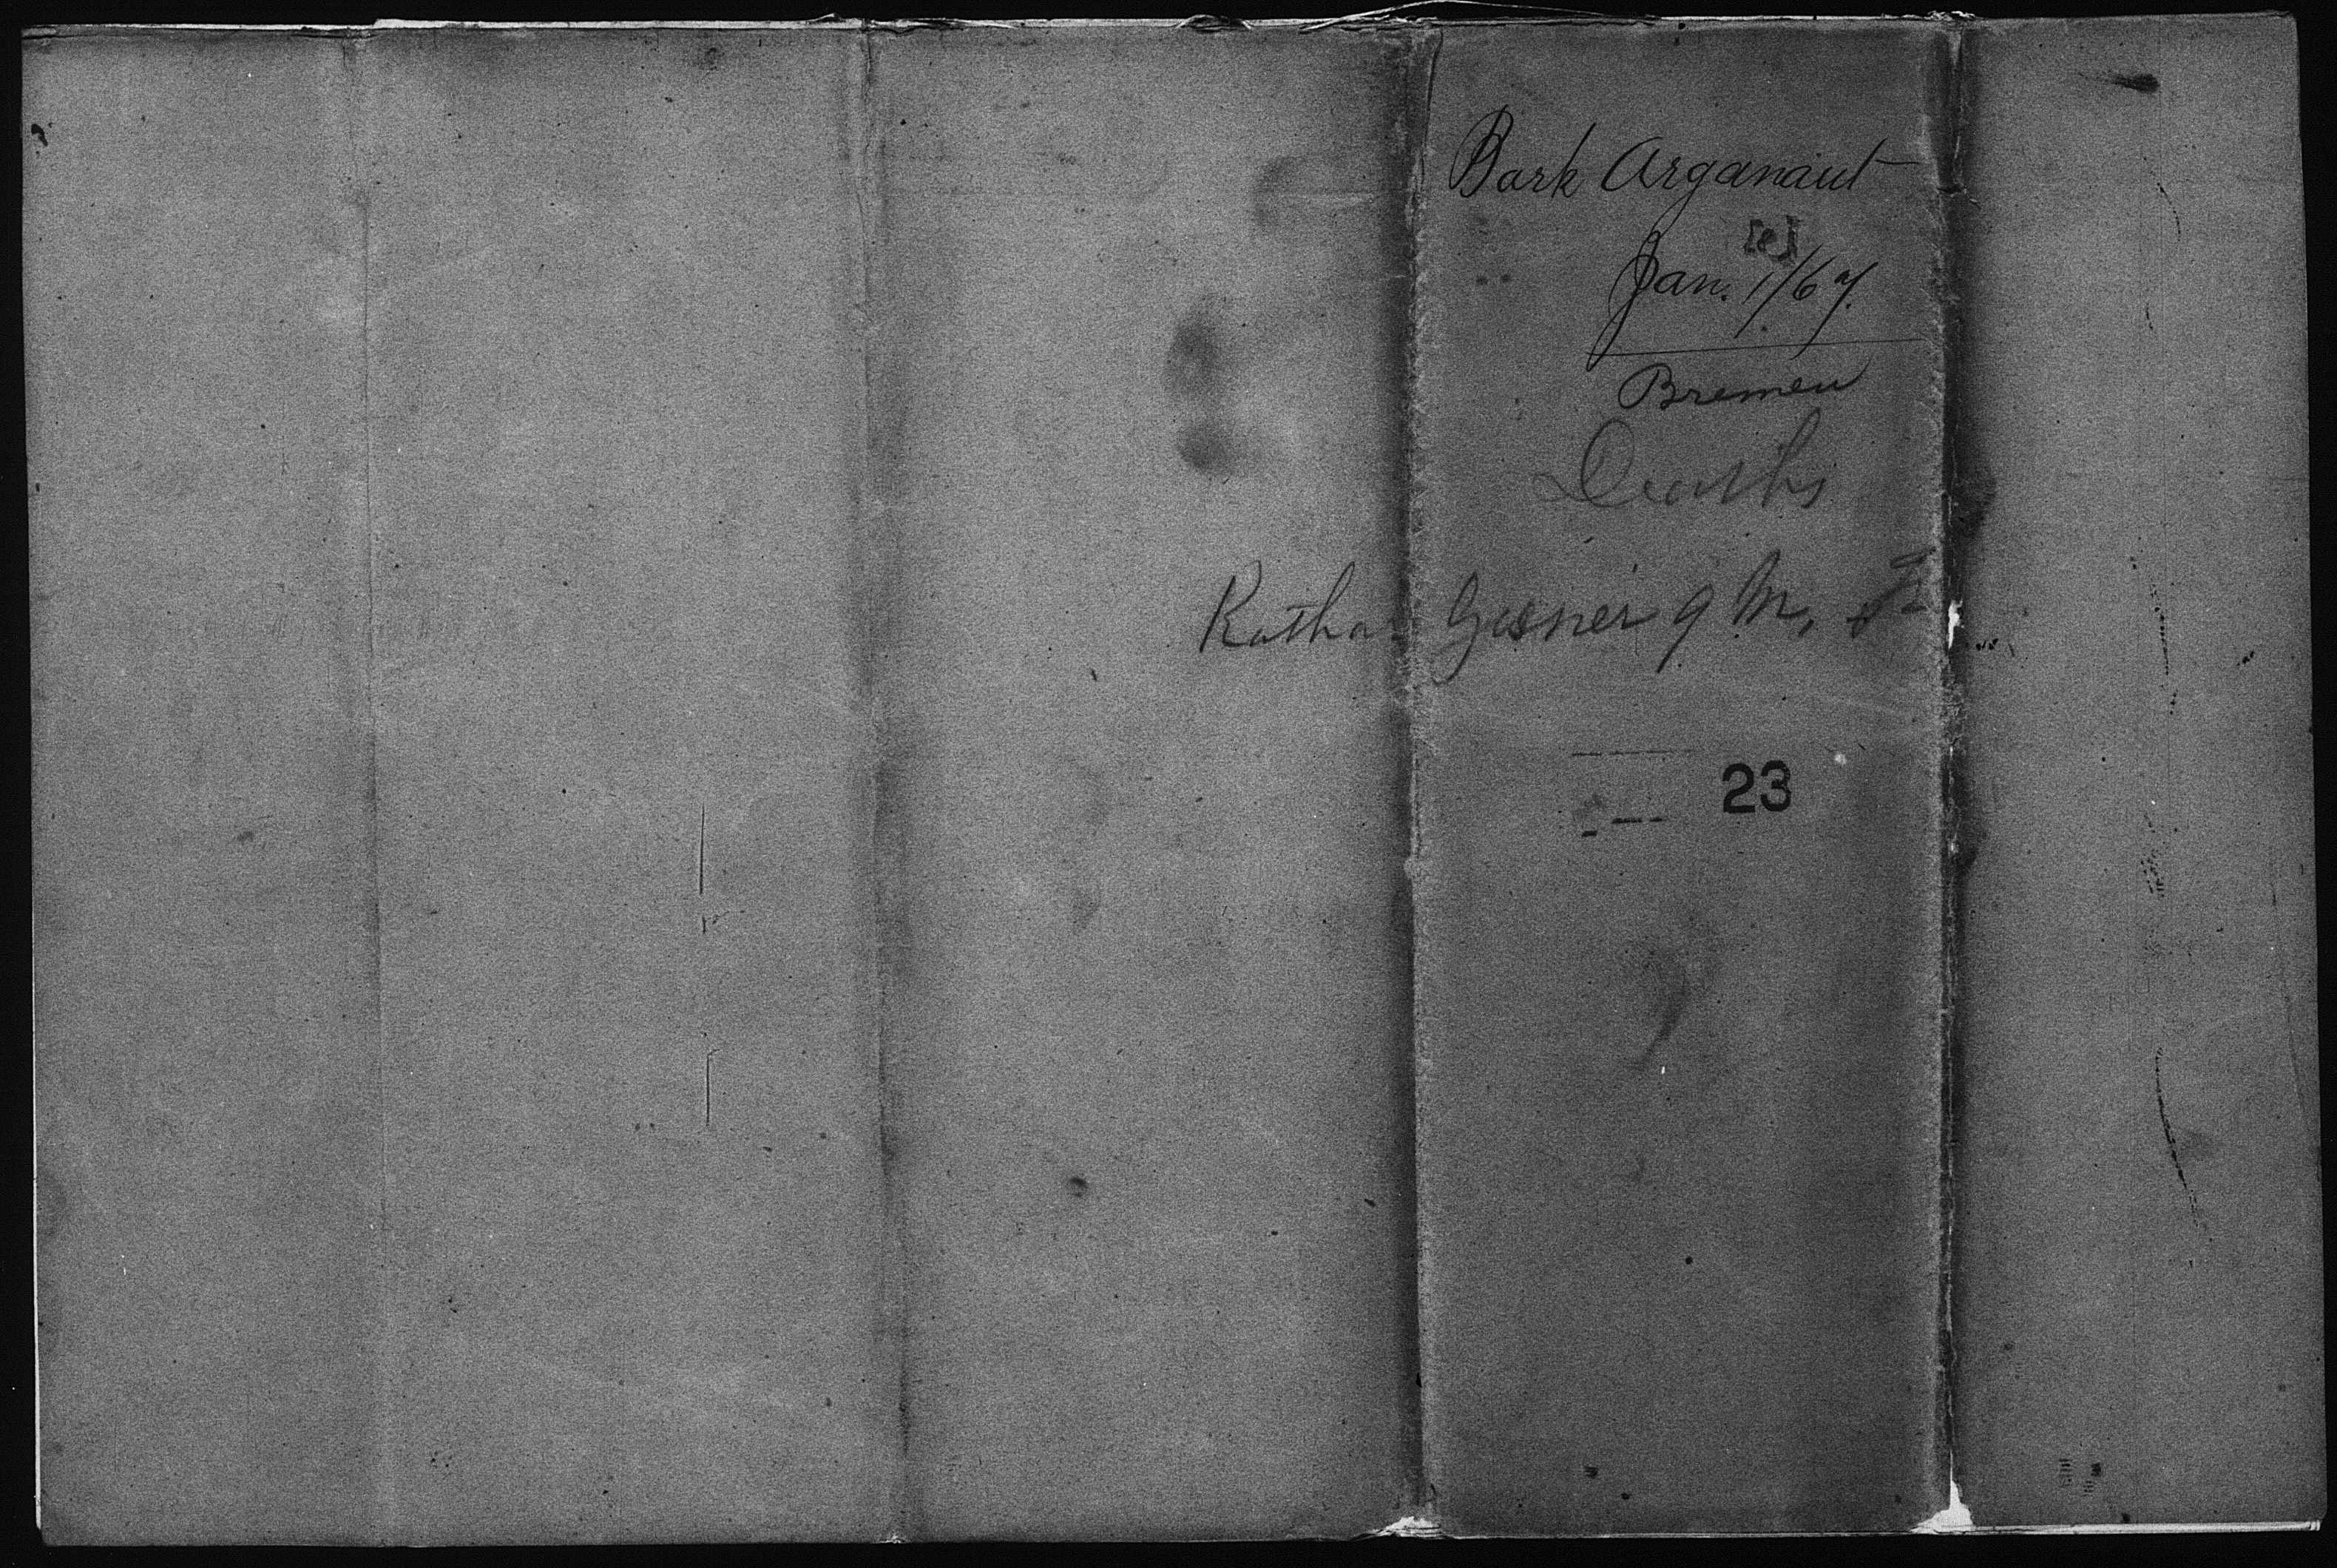 Bark Arganaut
Jan. 1/67.
Bremen
Deaths
Katha Gesner 9 M,
23